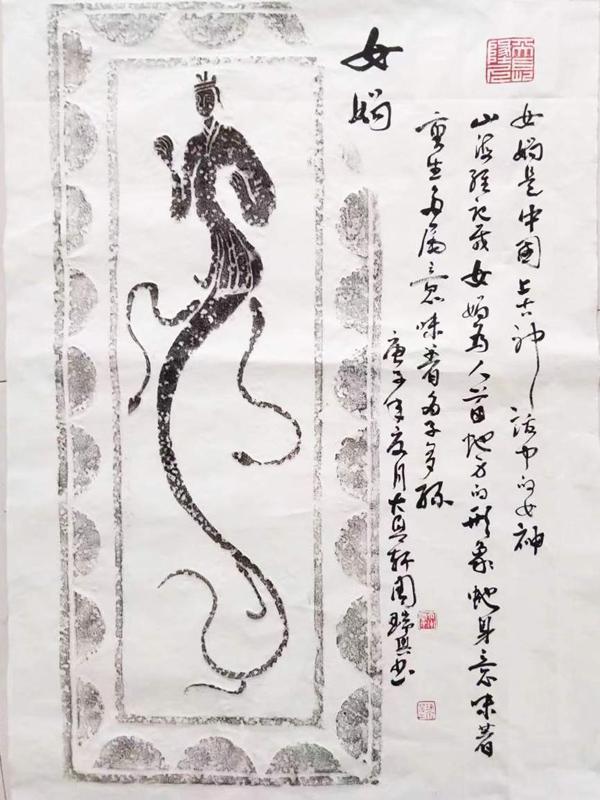 女娲
女娲是中国上古神话中的女神
山海经记载女娲为人首蛇身的形象蛇身意味着
重生多意味着多子多孙
庚子年夏月大轩周兴书